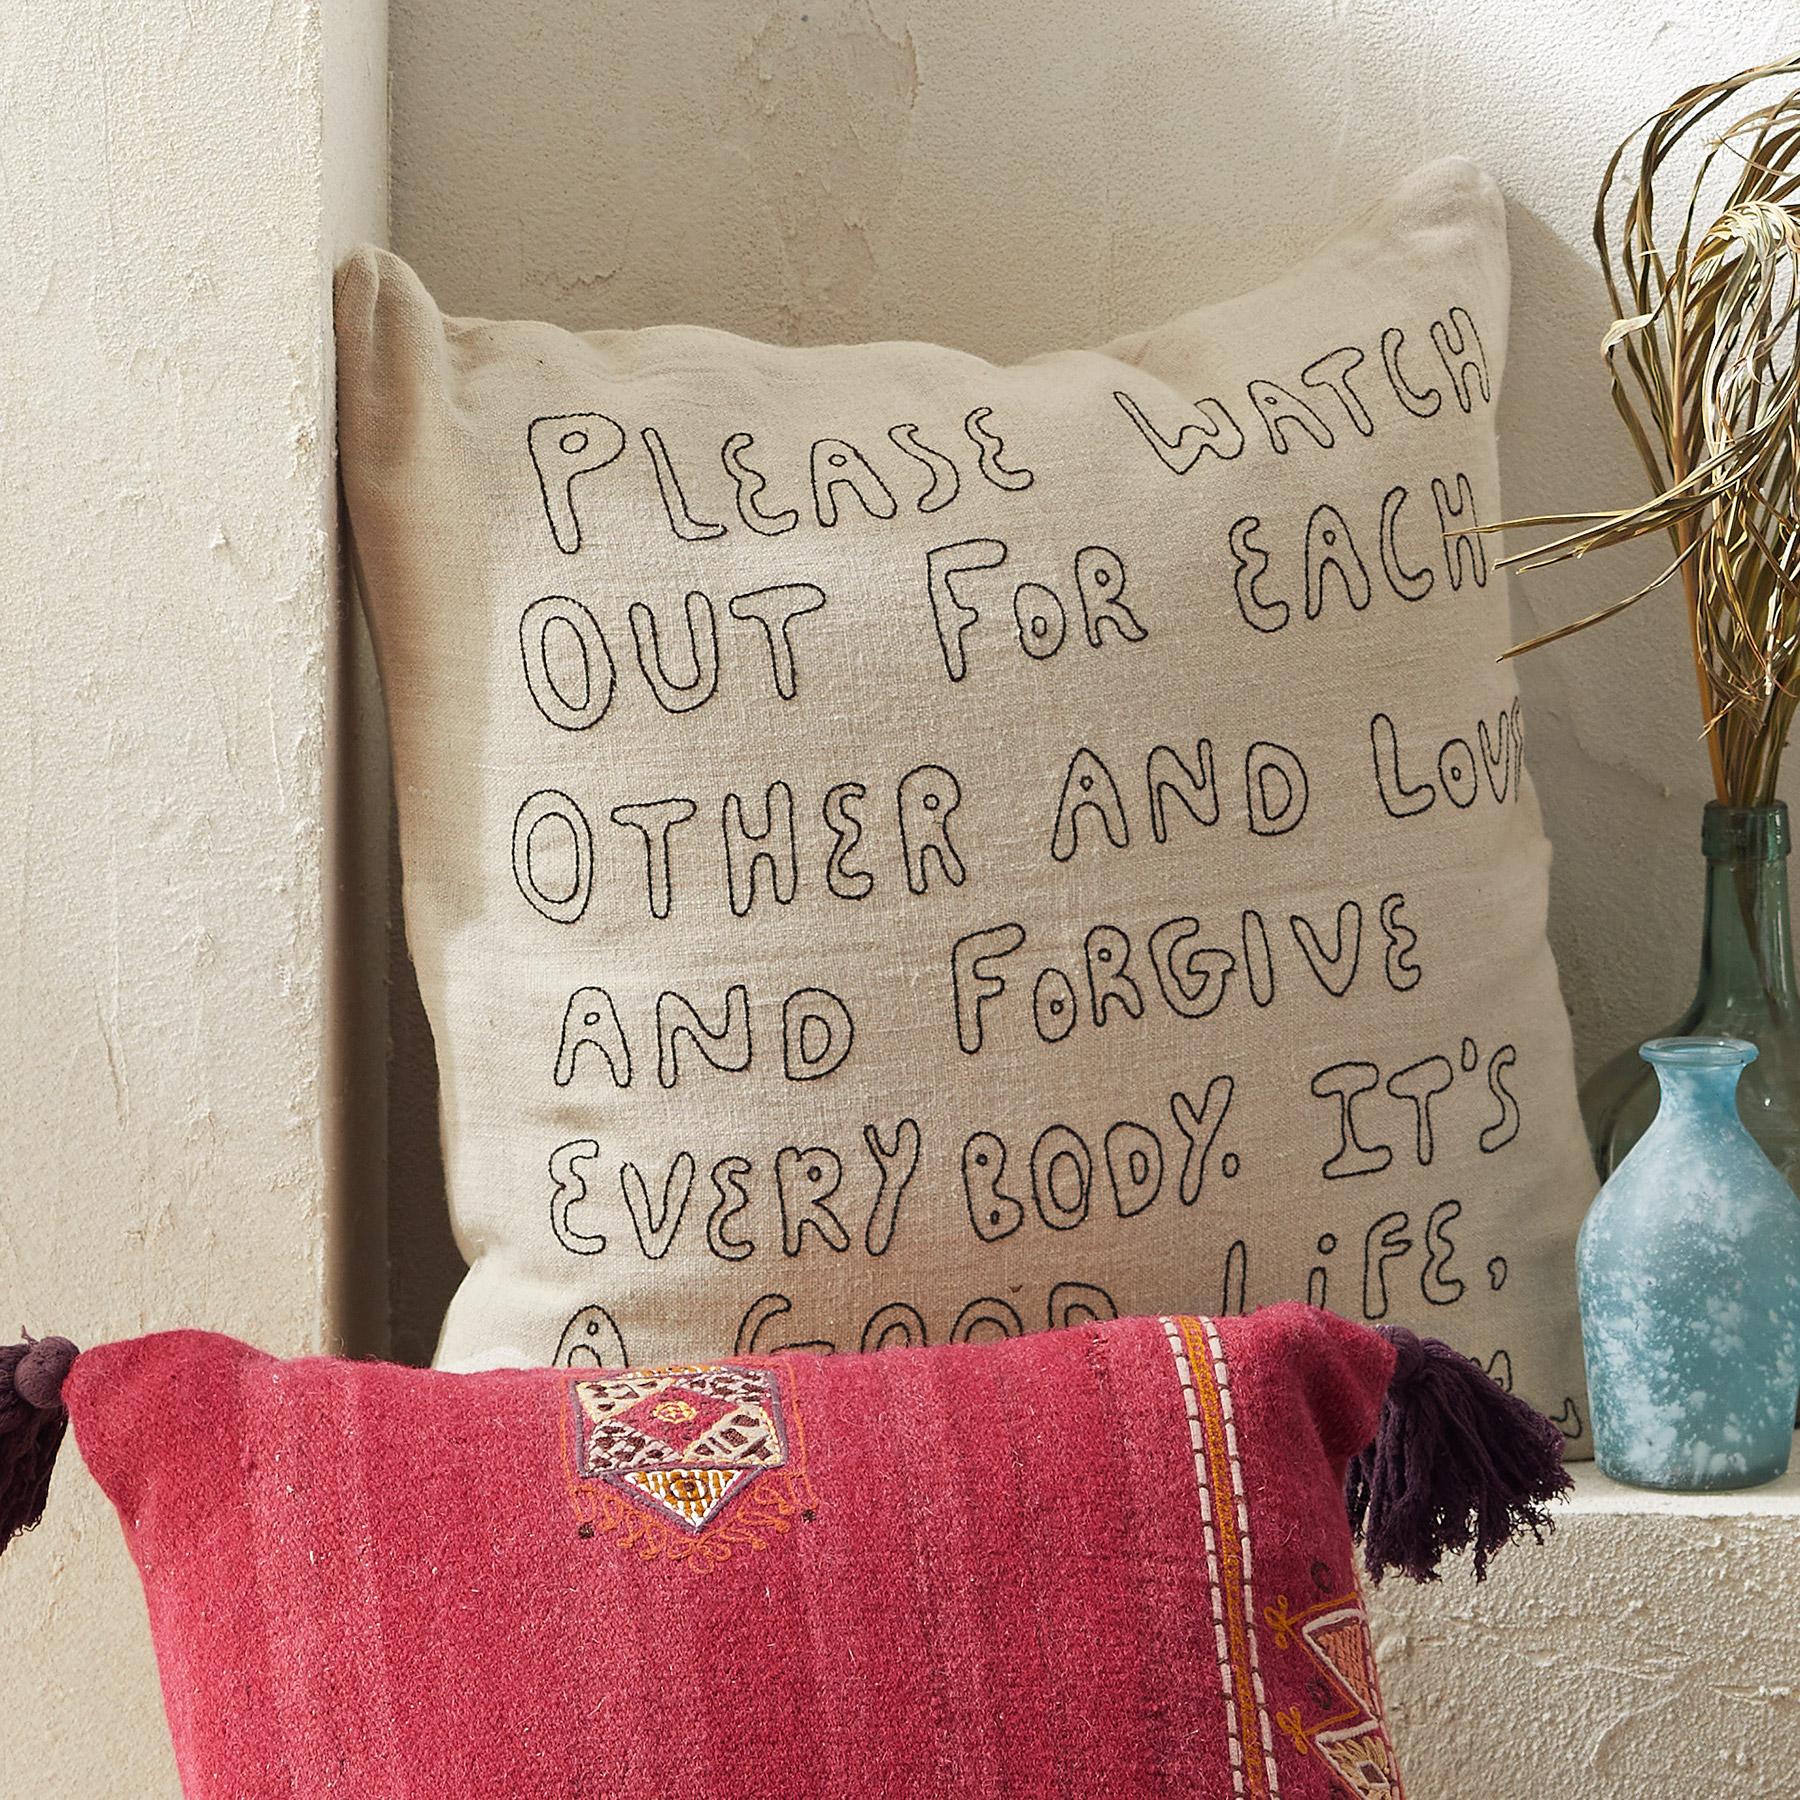 PLEASE WATCH
OUT FOR EACH
OTHER AND LOVE
AND FORGIVE
EVERYBODY. IT'S
A GOOD LIFE,